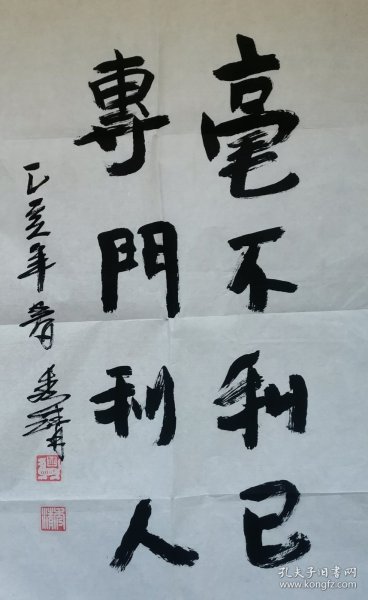 毫不利己
專門利人
己亥年春
孔夫子旧书网
www.kongfz.com